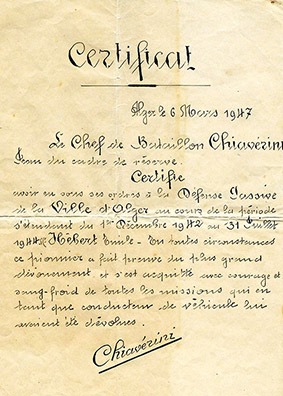 Certificat
Alger le 6 Mars 1947
Le Chef de Bataillon Chiavérini
Jean du cadre de réserve.
Certifie
avoir eu sous ses ordres à la Défense Passive
de la Ville d'Alger au cours de la période
s'étendant du 1er Décembre 1942 au 31 Juillet
1944 Hebert Emile. En toutes circonstances
ce pionnier a fait preuve du plus grand
dévouement et s'est acquitté avec courage et
sang-froid de toutes les missions qui en
tant que conducteur de véhicule lui
avaient été dévolues.
Chiavérini